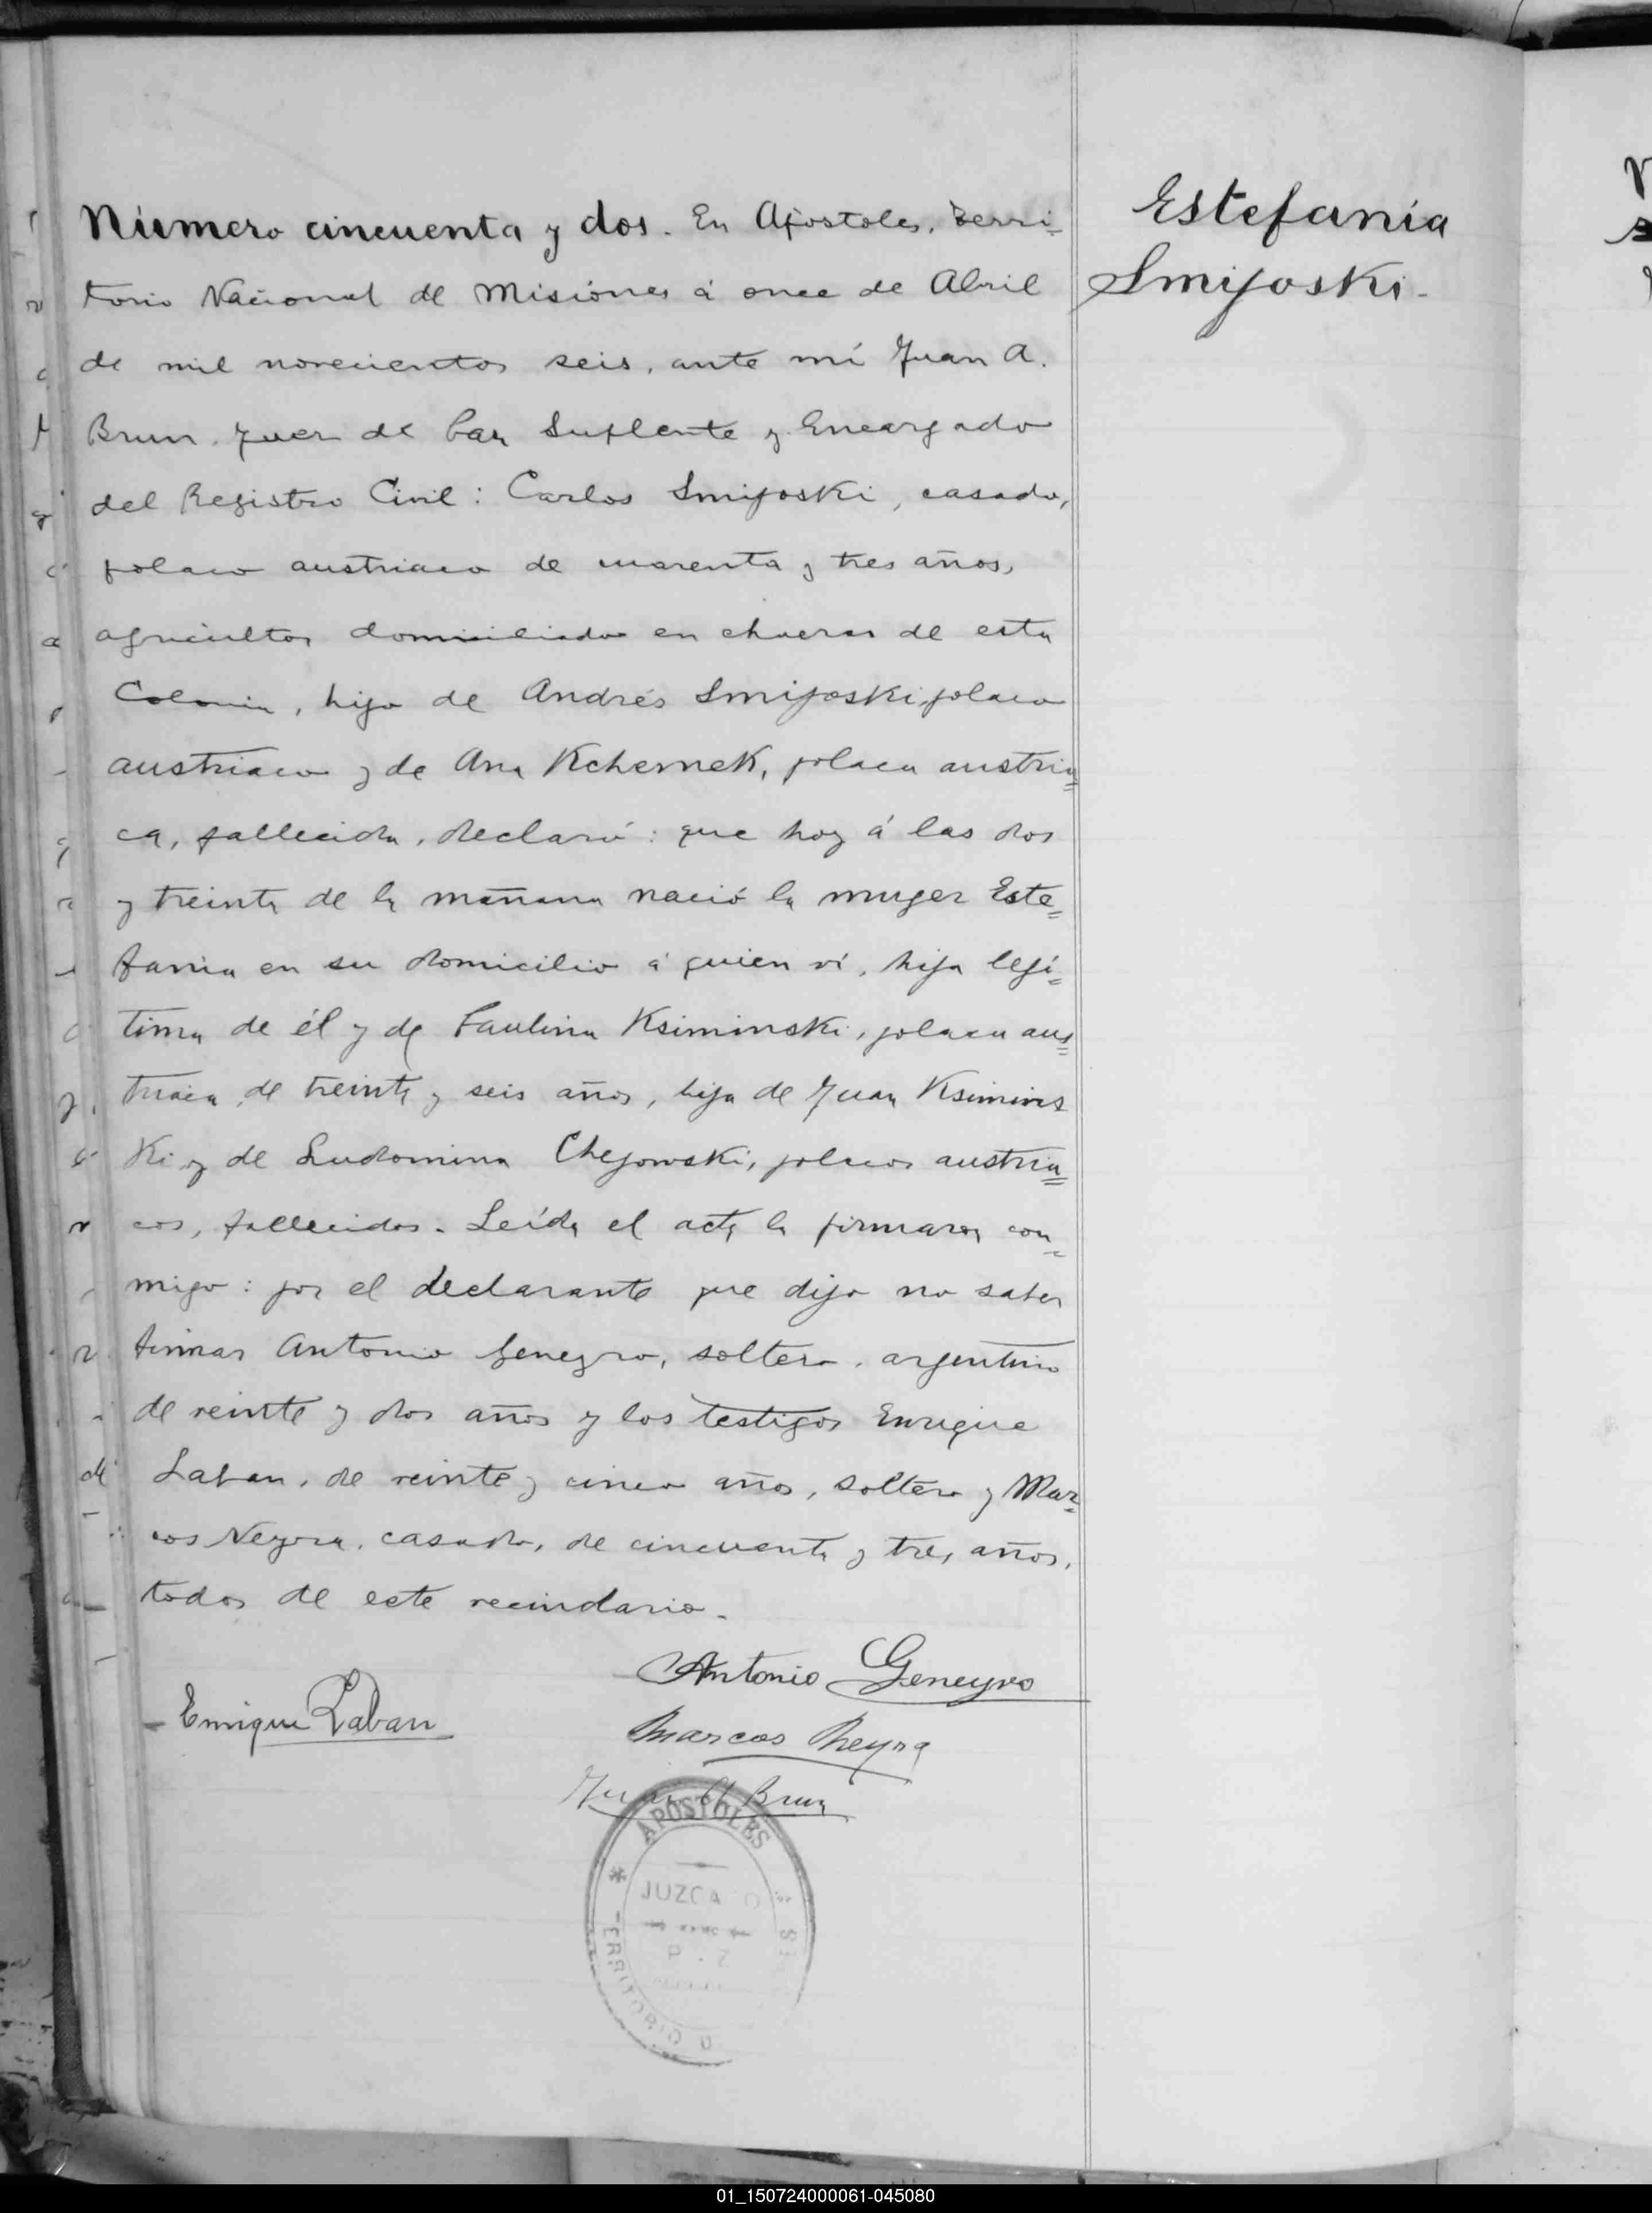 Número cincuenta y dos. En Apostoles, Terri=
torio Nacional de Misiones á once de Abril
de mil novecientos seis, ante mí Juan A.
Brun. Juez de Paz Suplente y Encargado
del Registro Civil: Carlos Smijoski, casado,
polaco austriaco de cuarenta y tres años,
agricultor domiciliado en chacras de esta
Colonia, hijo de Andrés Smijoski, polaco
austriaco y de Ana Kchemek, polaca austria=
ca, fallecida, declaró: que hoy á las dos
y treinta de la mañana nació la muger Este=
fania en su domicilio á quien ví, hija legí=
tima de él y de Paulina Ksiminski, polaca aus=
triaca, de treinta y seis años, hija de Juan Ksimins
ki y de Ludomina Chejowski, polacos austria=
cos, fallecidos. Leída el acta la firmaron con=
migo: por el declarante que dijo no saber
firmar Antonio Geneyro, soltero, argentino
de veinte y dos años y los testigos Enrique
Laban, de veinte y cinco años, soltero y Mar=
cos Neyra, casado, de cincuenta y tres años,
todos de este vecindario.
Antonio Geneyro
Enrique Laban
Marcos Neyra
Juan A Brun
APOSTOLES
JUZGADO
Estefanía
Smijoski.
01_150724000061-045080